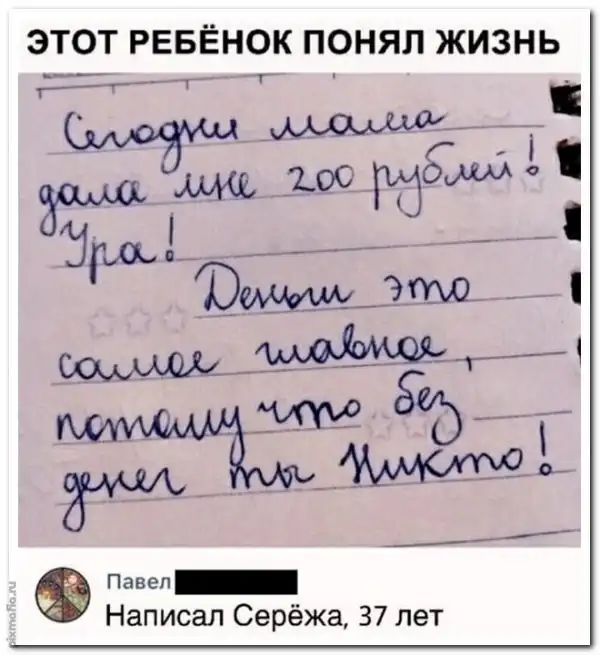 ЭТОТ РЕБЁНОК ПОНЯЛ ЖИЗНЬ
Сегодня мама
дала мне 200 рублей!
Ура!
Деньги это
самое главное,
потому что без
денег ты Никто!
Павел
Написал Серёжа, 37 лет
pixmafia.ru